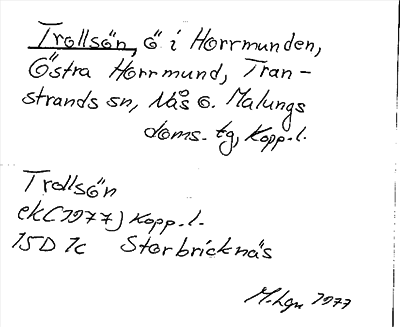 Trollsön, ö i Horrmunden,
Östra Horrmund, Tran-
strands sn, Nås o. Malungs
doms. tg, Kopp. l.
Trollsön
ek (1977) Kopp. l.
15D 7c Storbricknäs
M.Lgn 1977